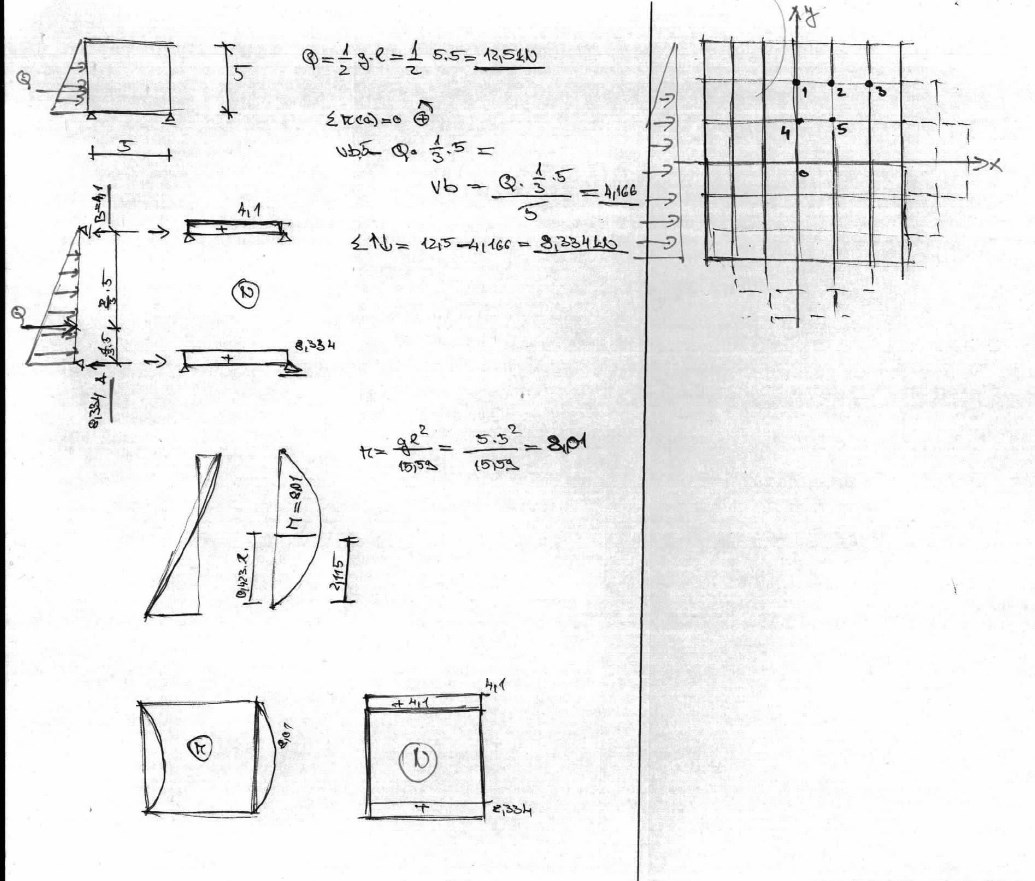 Q
5
5
Q = 1/2 g·l = 1/2 5.5 = 12,5kN
ΣM(a)=0 ⊕
Vb.5 - Q · 1/3 · 5 =
Vb = Q · 1/3 · 5 / 5 = 4,166
Σ↑↓ = 12,5 - 4,166 = 8,334 kN
B=4,1
4,1
+
2/3 · 5
N
Q
1/3 · 5
8,334
+
8,334 A
M = gl² / 15,59 = 5.5² / 15,59 = 8,01
M=8,01
0,423.l.
2,115
M
8,01
4,1
+4,1
N
+
8,334
y
1 2 3
4 5
0
x